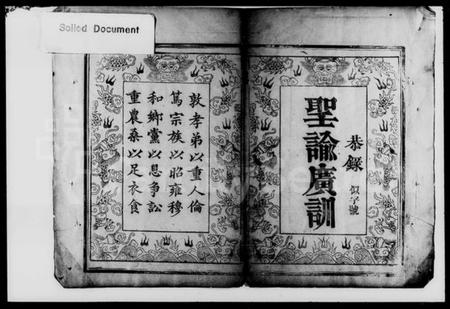 Soiled Document
恭錄
聖諭廣訓
似字號
敦孝弟以重人倫
篤宗族以昭雍穆
和鄉黨以息爭訟
重農桑以足衣食